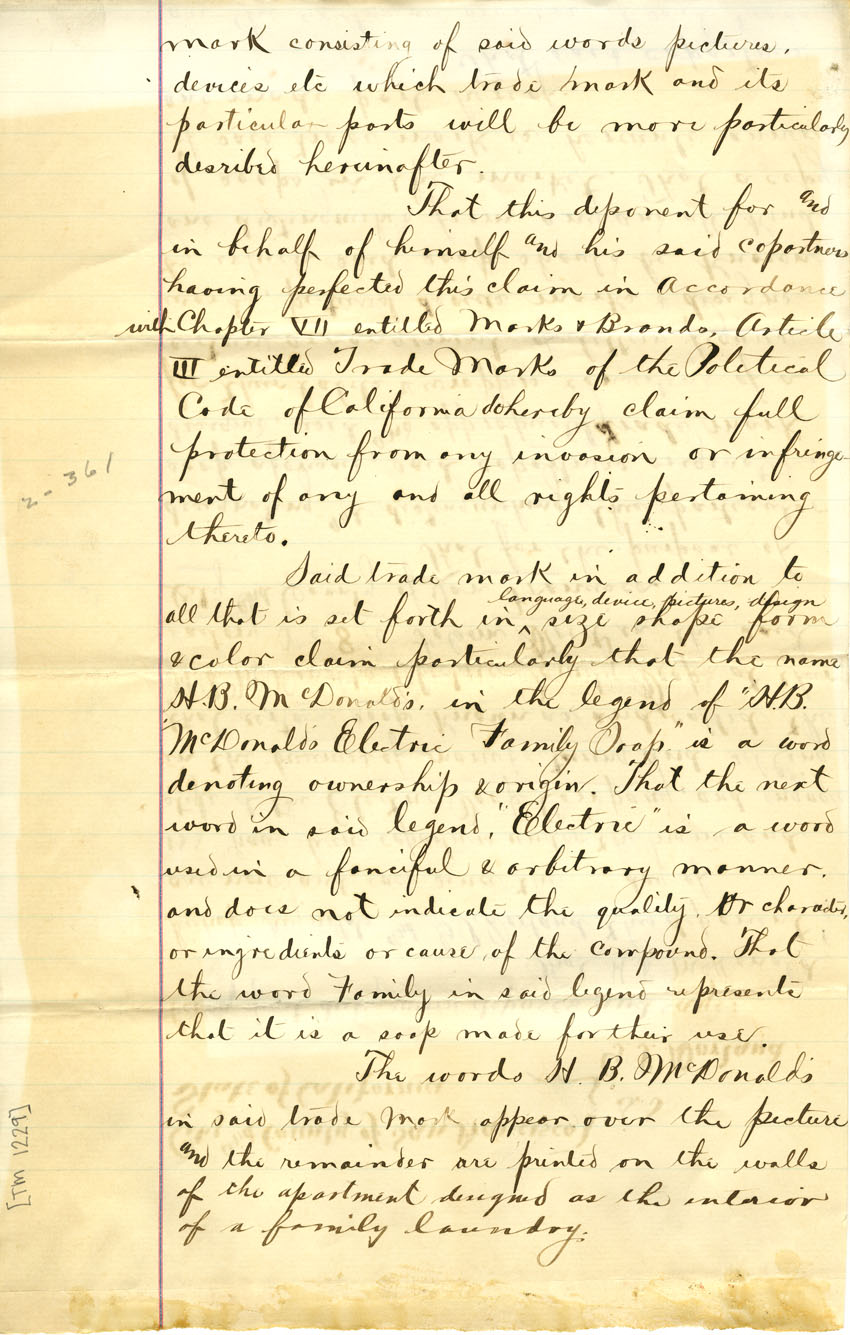 mark consisting of said words pictures,
devices etc which trade mark and its
particular parts will be more particularly
desribed hereinafter.
That this deponent for and
in behalf of himself and his said copartners
having perfected this claim in accordance
with Chapter VII entitled Marks & Brands, Article
III entitled Trade Marks of the Political
Code of California do hereby claim full
protection from any invasion or infringe-
ment of any and all rights pertaining
thereto.
Said trade mark in addition to
language, device, pictures, design
all that is set forth in ^ size shape form
& color claim particularly that the name
H.B. McDonald's, in the legend of "H.B.
"McDonald's Electric Family Soap" is a word
denoting ownership & origin. That the next
word in said legend, "Electric" is a word
used in a fanciful & arbitrary manner,
and does not indicate the quality, or character,
or ingredients or cause of the compound. That
the word Family in said legend represents
that it is a soap made for their use.
The words H. B. McDonald's
in said trade mark appear over the picture
and the remainder are printed on the walls
of the apartment designed as the interior
of a family laundry.
2-361
[TM 1229]